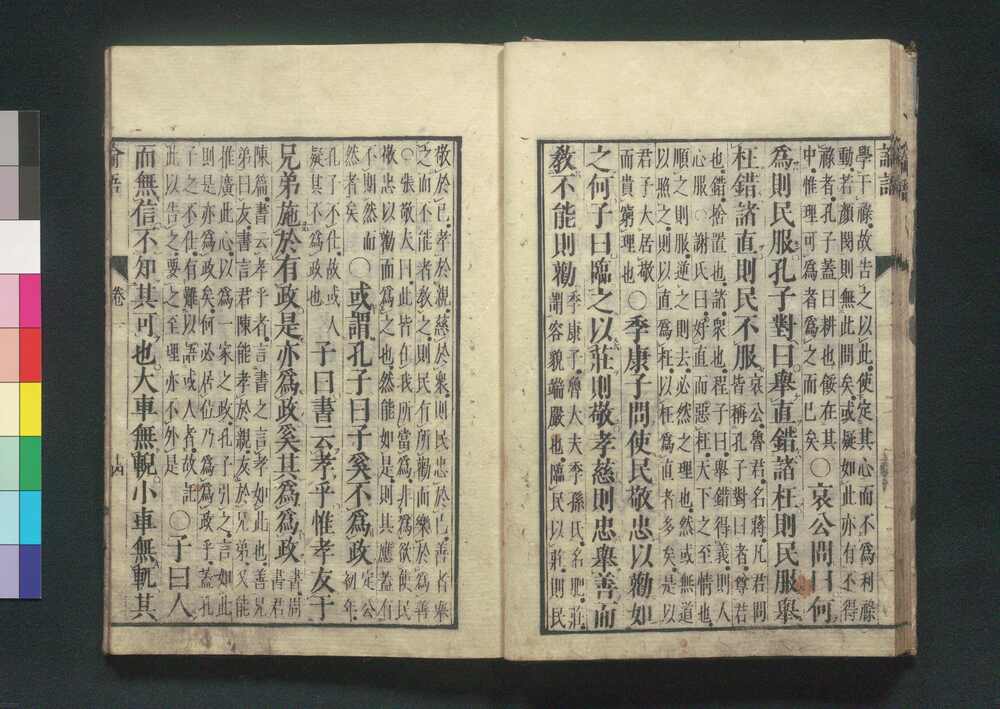 論語
學干祿故告之以此使定其心而不為利祿
動若顏閔則無此問矣或疑如此亦有不得
祿者孔子蓋曰耕也餒在其
中惟理可為者為之而已矣
〇哀公問曰何
爲則民服孔子對曰舉直錯諸枉則民服舉
枉錯諸直則民不服
哀公魯君名蔣凡君問
皆稱孔子對曰者尊君
也錯捨置也諸衆也程子曰舉錯得義則人
心服〇謝氏曰好直而惡枉天下之至情也
順之則服逆之則去必然之理也然或無道
以照之則以直為枉以枉為直者多矣是以
君子大居敬
而貴窮理也
〇季康子問使民敬忠以勸如
之何子曰臨之以莊則敬孝慈則忠舉善而
教不能則勸
季康子魯大夫季孫氏名肥莊
謂容貌端嚴也臨民以莊則民
敬於己孝於親慈於衆則民忠於己善者舉
之而不能者教之則民有所勸而樂於為善
〇張敬夫曰此皆在我所當為非為欲使民
敬忠以勸而為之也然能如是則其應蓋有
不期然而
然者矣
〇或謂孔子曰子奚不爲政
定公
初年
孔子不仕故或人
疑其不為政也
子曰書云孝乎惟孝友于
兄弟施於有政是亦爲政奚其爲爲政
書周
書君
陳篇書云孝乎者言書之言孝如此也善兄
弟曰友書言君陳能孝於親友於兄弟又能
推廣此心以為一家之政孔子引之言如此
則是亦為政矣何必居位乃為為政乎蓋孔
子之不仕有難以語或人者故託
此以告之要之至理亦不外是
〇子曰人
而無信不知其可也大車無輗小車無軏其
論語 卷一 十四